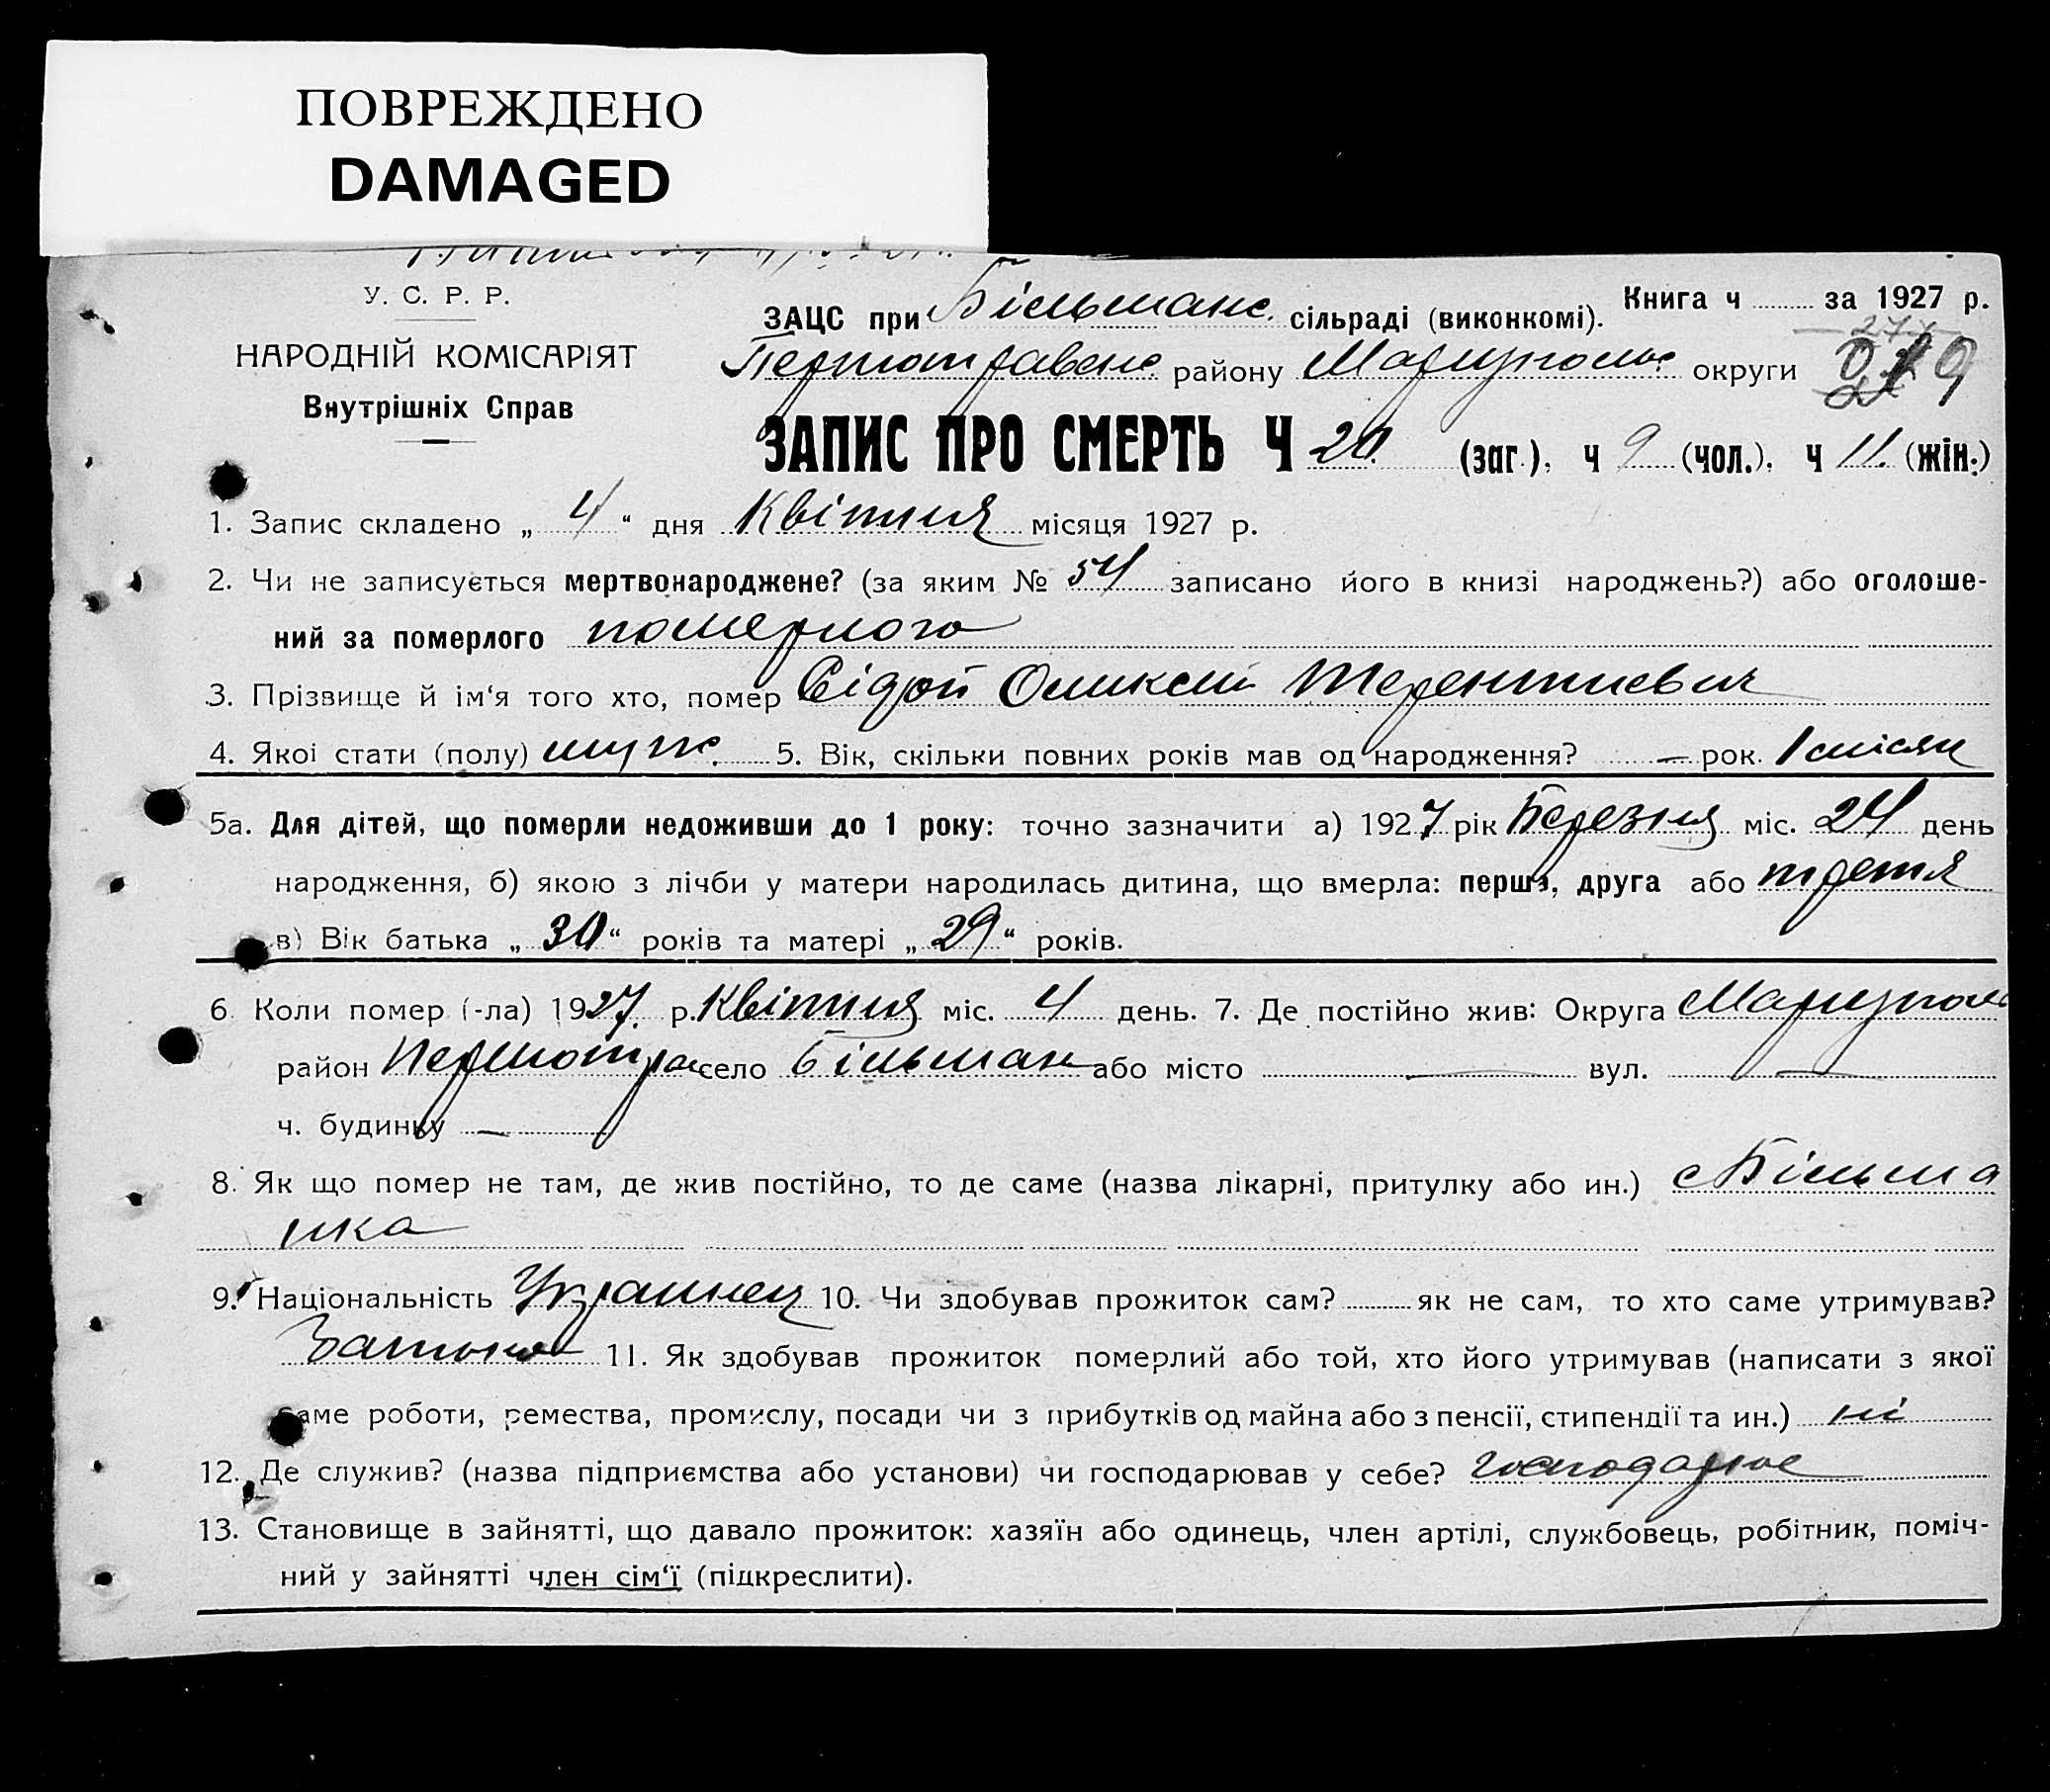 ПОВРЕЖДЕНО
DAMAGED
У. С. Р. Р.
НАРОДНІЙ КОМІСАРІЯТ
Внутрішніх Справ
Книга ч за 1927 р.
ЗАЦС при Більманс. сільраді (виконкомі).
Першотравенс. району Маріупольс округи
ЗАПИС ПРО СМЕРТЬ Ч 20. (заг.), ч 9 (чол.), ч 11. (жін.)
1. Запис складено „ 4 “ дня Квітня місяця 1927 р.
2. Чи не записується мертвонароджене? (за яким № 54 записано його в книзі народжень?) або оголоше-
ний за померлого померлого
3. Прізвище й ім‘я того хто, помер Сідой Оликсій Терентиевич
4. Якої стати (полу) муж. 5. Вік, скільки повних років мав од народження? — рок. 1 місяц
5а. Для дітей, що померли недоживши до 1 року: точно зазначити а) 1927 рік Березня міс. 24 день
народження, б) якою з лічби у матери народилась дитина, що вмерла: перша, друга або третя
в) Вік батька „ 30 “ років та матері „ 29 “ років.
6. Коли помер (-ла) 1927. р. Квітня міс. 4 день. 7. Де постійно жив: Округа Маріуполь
район Першотра село Більманк або місто — вул. —
ч. будинку —
8. Як що помер не там, де жив постійно, то де саме (назва лікарні, притулку або ин.) с Більма
нка
9. Національність Украинец 10. Чи здобував прожиток сам? як не сам, то хто саме утримував?
Батько 11. Як здобував прожиток померлий або той, хто його утримував (написати з якої
саме роботи, ремества, промислу, посади чи з прибутків од майна або з пенсії, стипендії та ин.) ні
12. Де служив? (назва підприємства або установи) чи господарював у себе?
13. Становище в зайнятті, що давало прожиток: хазяїн або одинець, член артілі, службовець, робітник, поміч-
ний у зайнятті член сім‘ї (підкреслити).